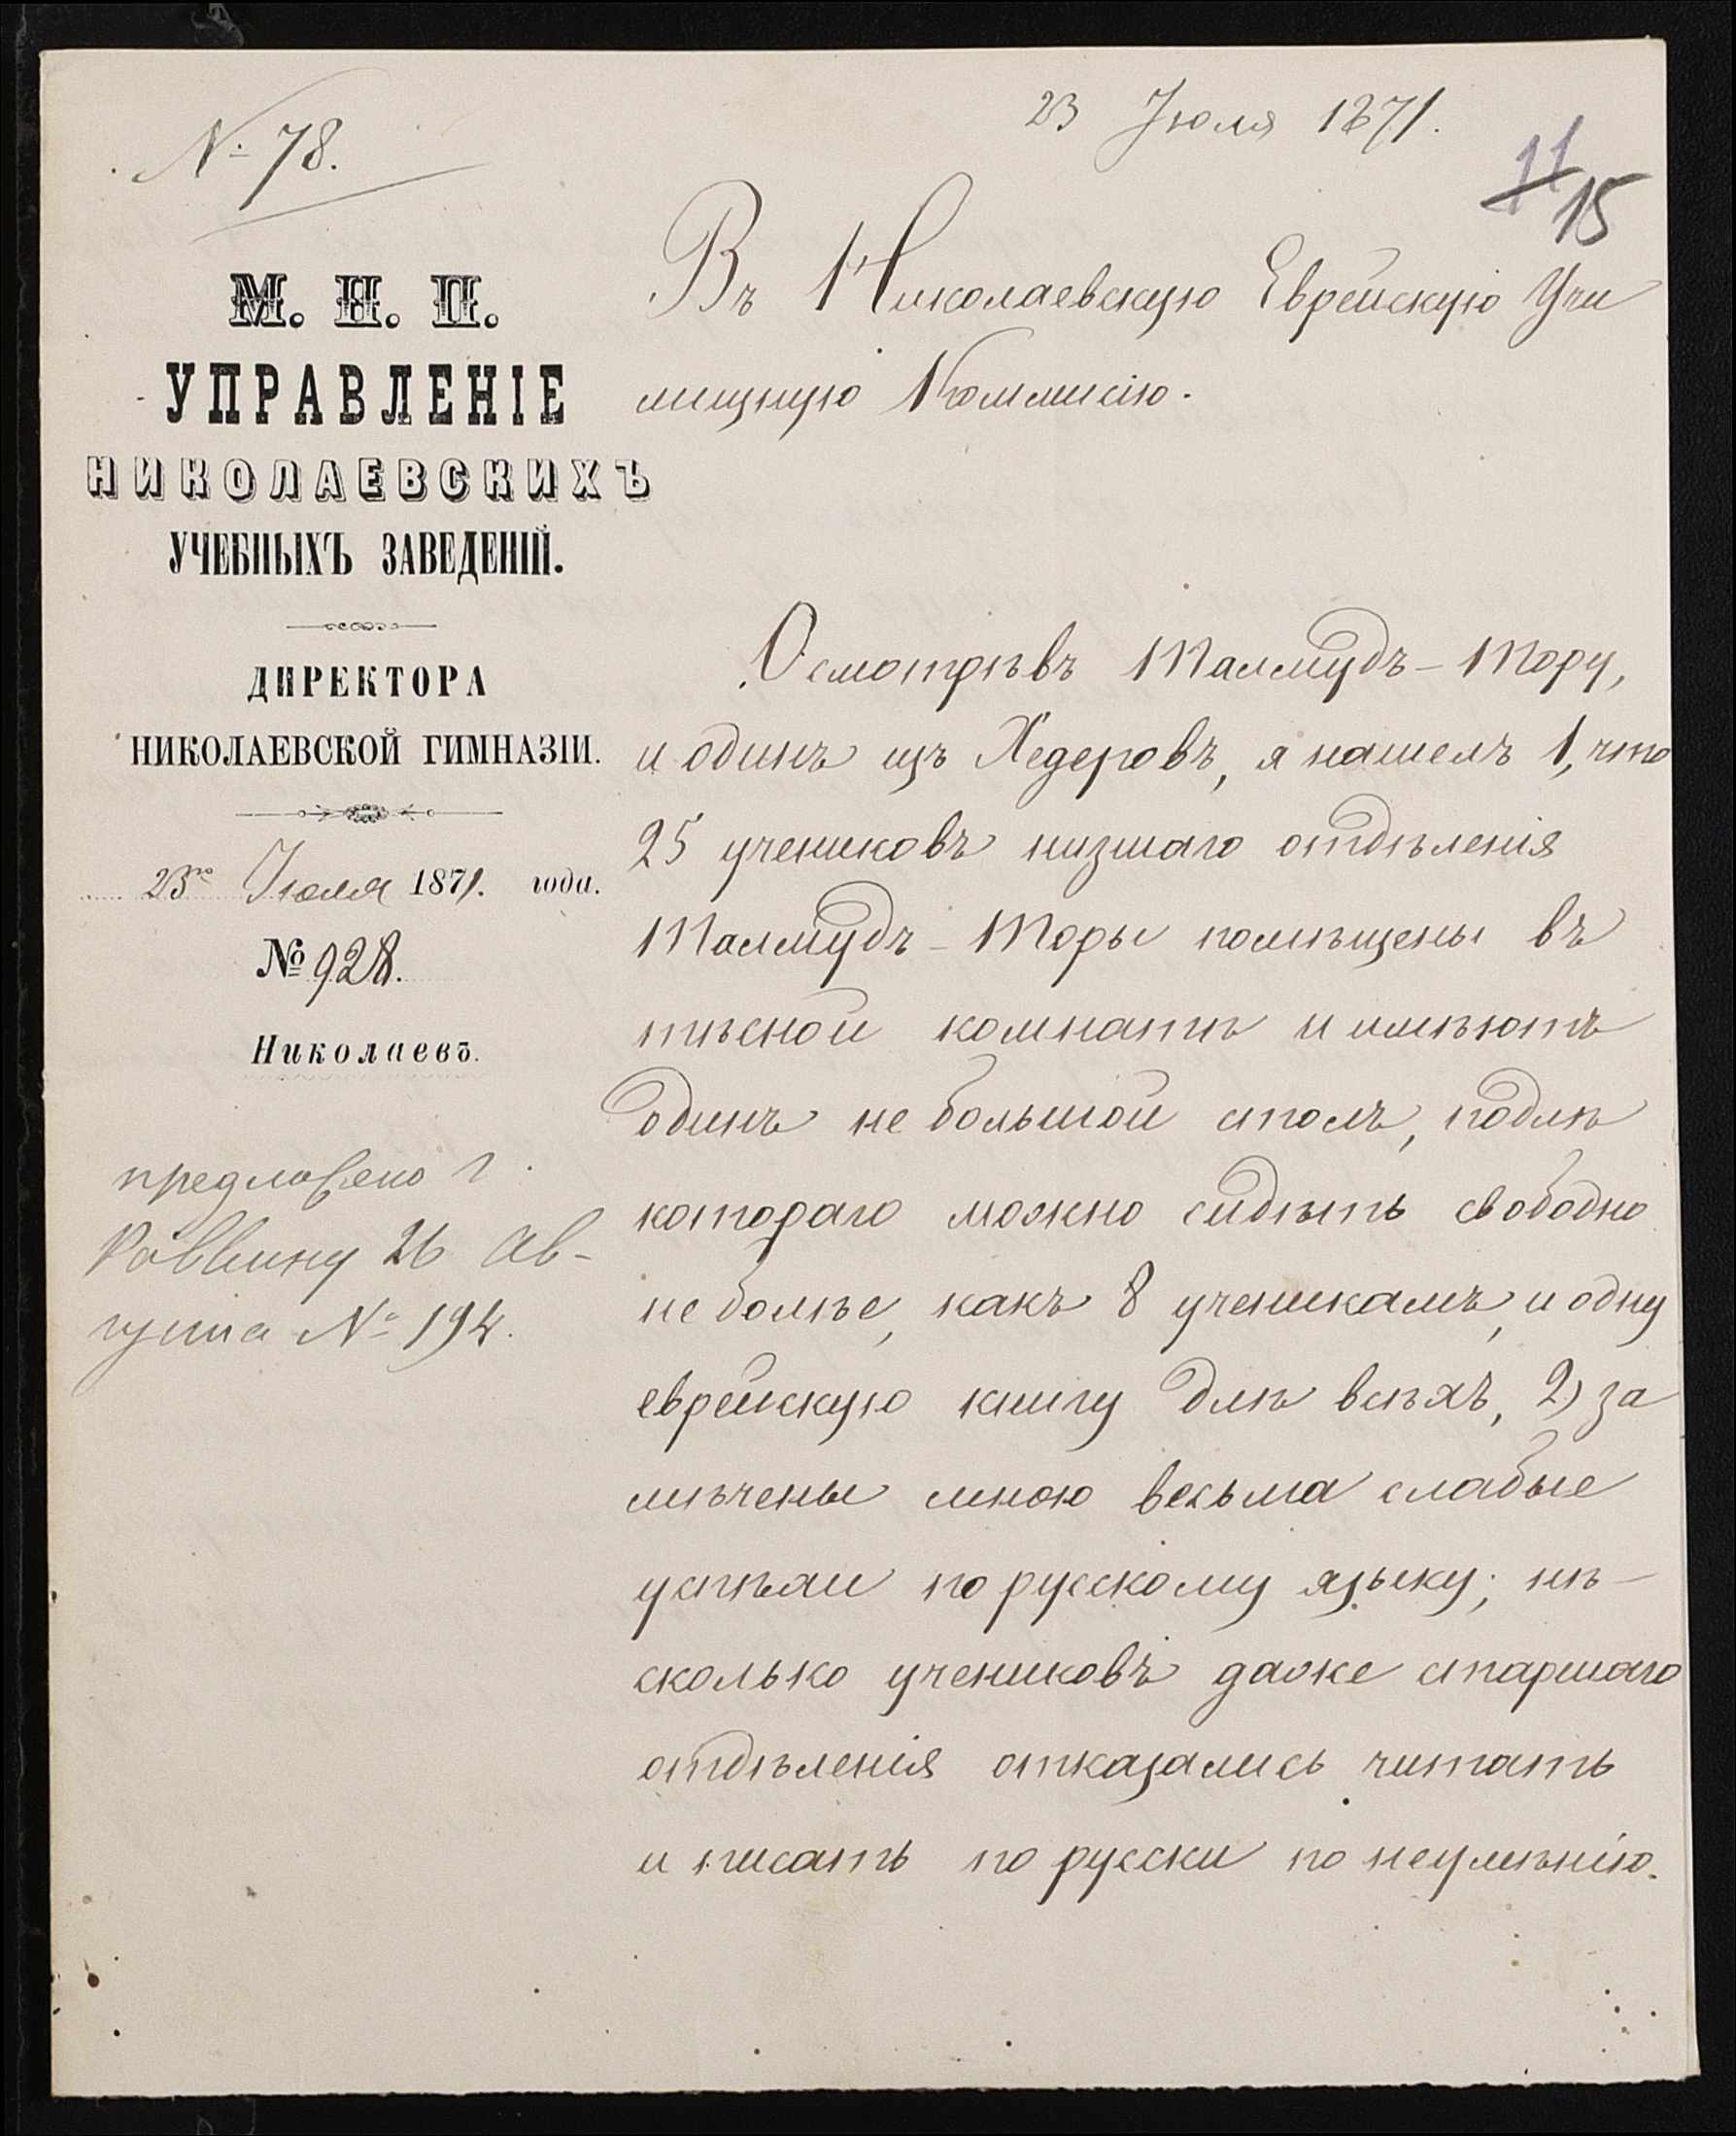 № 78.
23 Іюля 1871.
11
15
М. Н. П.
УПРАВЛЕНІЕ
НИКОЛАЕВСКИХЪ
УЧЕБНЫХЪ ЗАВЕДЕНІЙ.
ДИРЕКТОРА
НИКОЛАЕВСКОЙ ГИМНАЗІИ.
23го Іюля 1871. года.
№ 928.
Николаевъ.
предложено г.
Раввину 26 Ав-
густа № 194.
Въ Николаевскую Еврейскую Учи
лищную Коммисію.
Осмотрѣвъ Талмудъ-Тору,
и одинъ изъ Хедеровъ, я нашелъ 1, что
25 учениковъ низшаго отдѣленія
Талмудъ-Торы помѣщены въ
тѣсной комнатѣ и имѣютъ
одинъ не большой столъ, подлѣ
котораго можно сидѣть свободно
не болѣе, какъ 8 ученикамъ, и одну
еврейскую книгу длѣ всѣхъ, 2) за
мѣчены мною весьма слабые
успѣхи по русскому языку; нѣ-
сколько учениковъ даже старшаго
отдѣленія отказались читать
и писать по русски по неумѣнію.